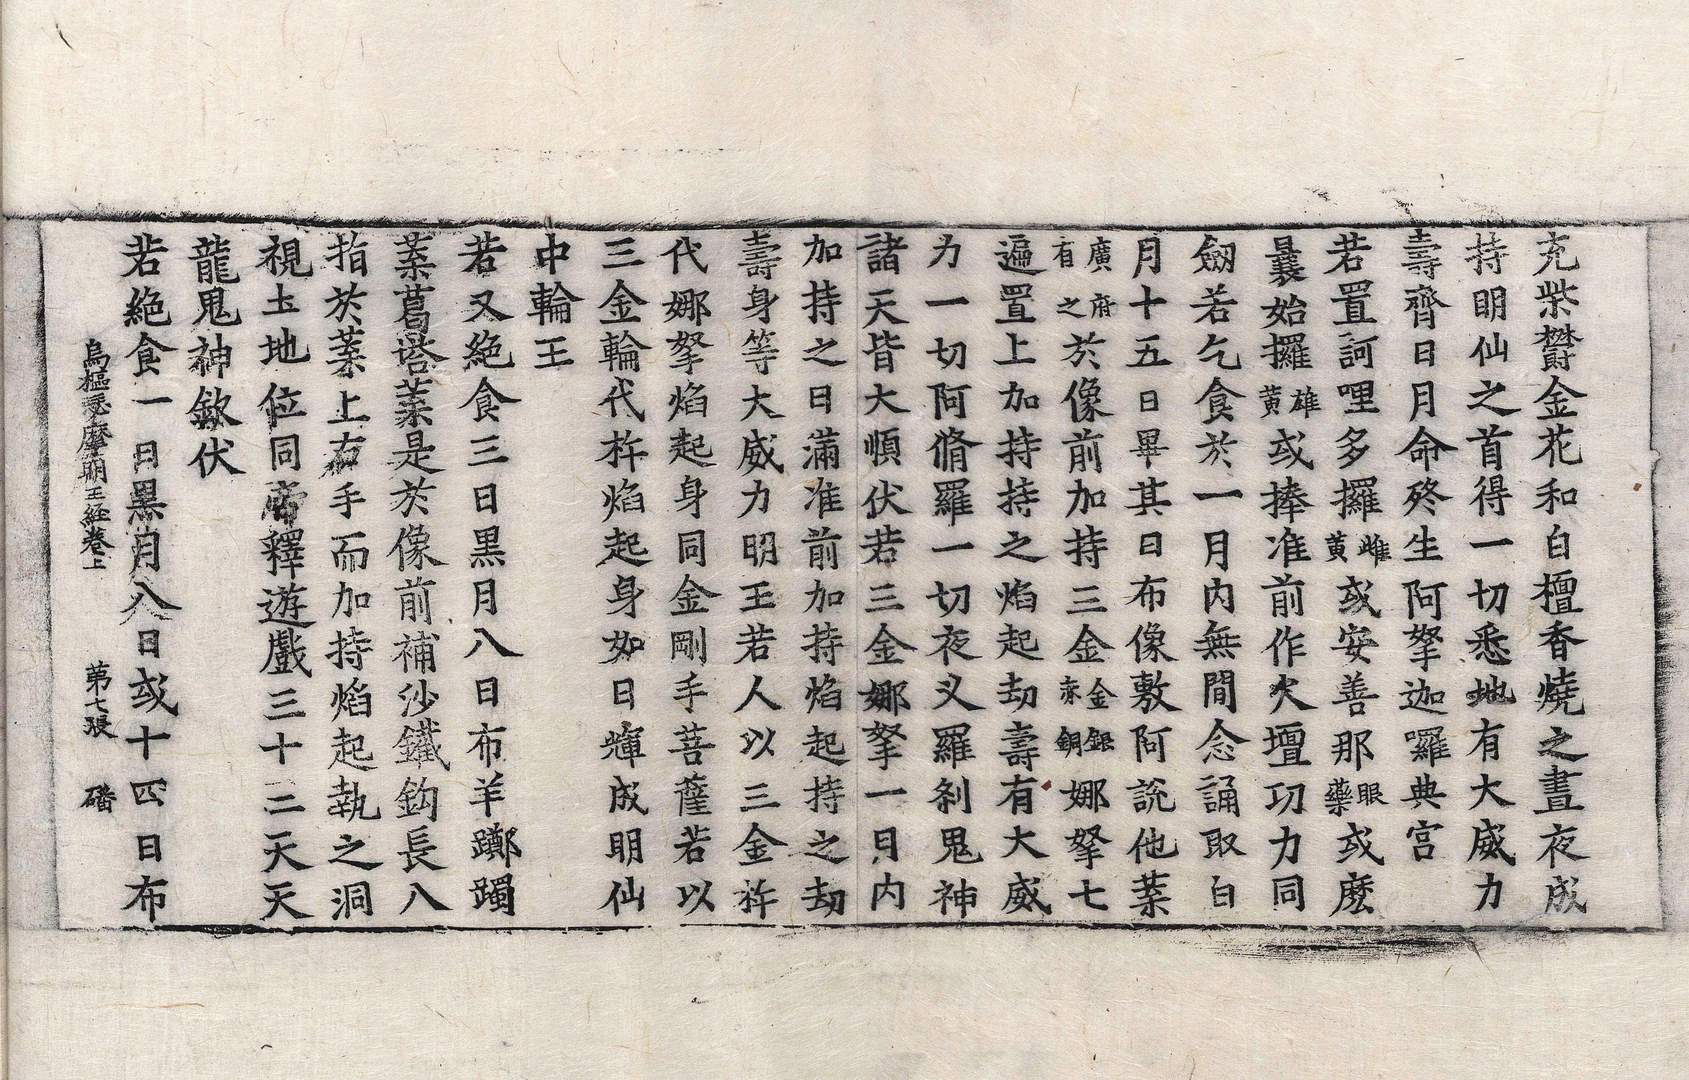 充柴欝金花和白檀香燒之晝夜成
持明仙之首得一切悉地有大威力
壽齊日月命終生阿拏迦囉典宮
若置訶哩多攞雌黃或安善那眼藥或麼
曩始攞雄黃或捧准前作火壇功力同
劒若乞食於一月內無間念誦取白
月十五日畢其日布像敷阿說他葉
廣府有之於像前加持三金金銀赤銅娜拏七
遍置上加持持之焰起劫壽有大威
力一切阿脩羅一切夜叉羅剎鬼神
諸天皆大順伏若三金娜拏一月內
加持之日滿准前加持焰起持之劫
壽身等大威力明王若人以三金杵
代娜拏焰起身同金剛手菩薩若以
三金輪代杵焰起身如日輝成明仙
中輪王
若又絕食三日黑月八日布羊躑躅
葉葛塔葉是於像前補沙鐵鈎長八
指於葉上右手而加持焰起執之洞
視土地位同帝釋遊戲三十二天天
龍鬼神欽伏
若絕食一日黑月八日或十四日布
烏樞瑟摩明王經卷上　第七張　磻